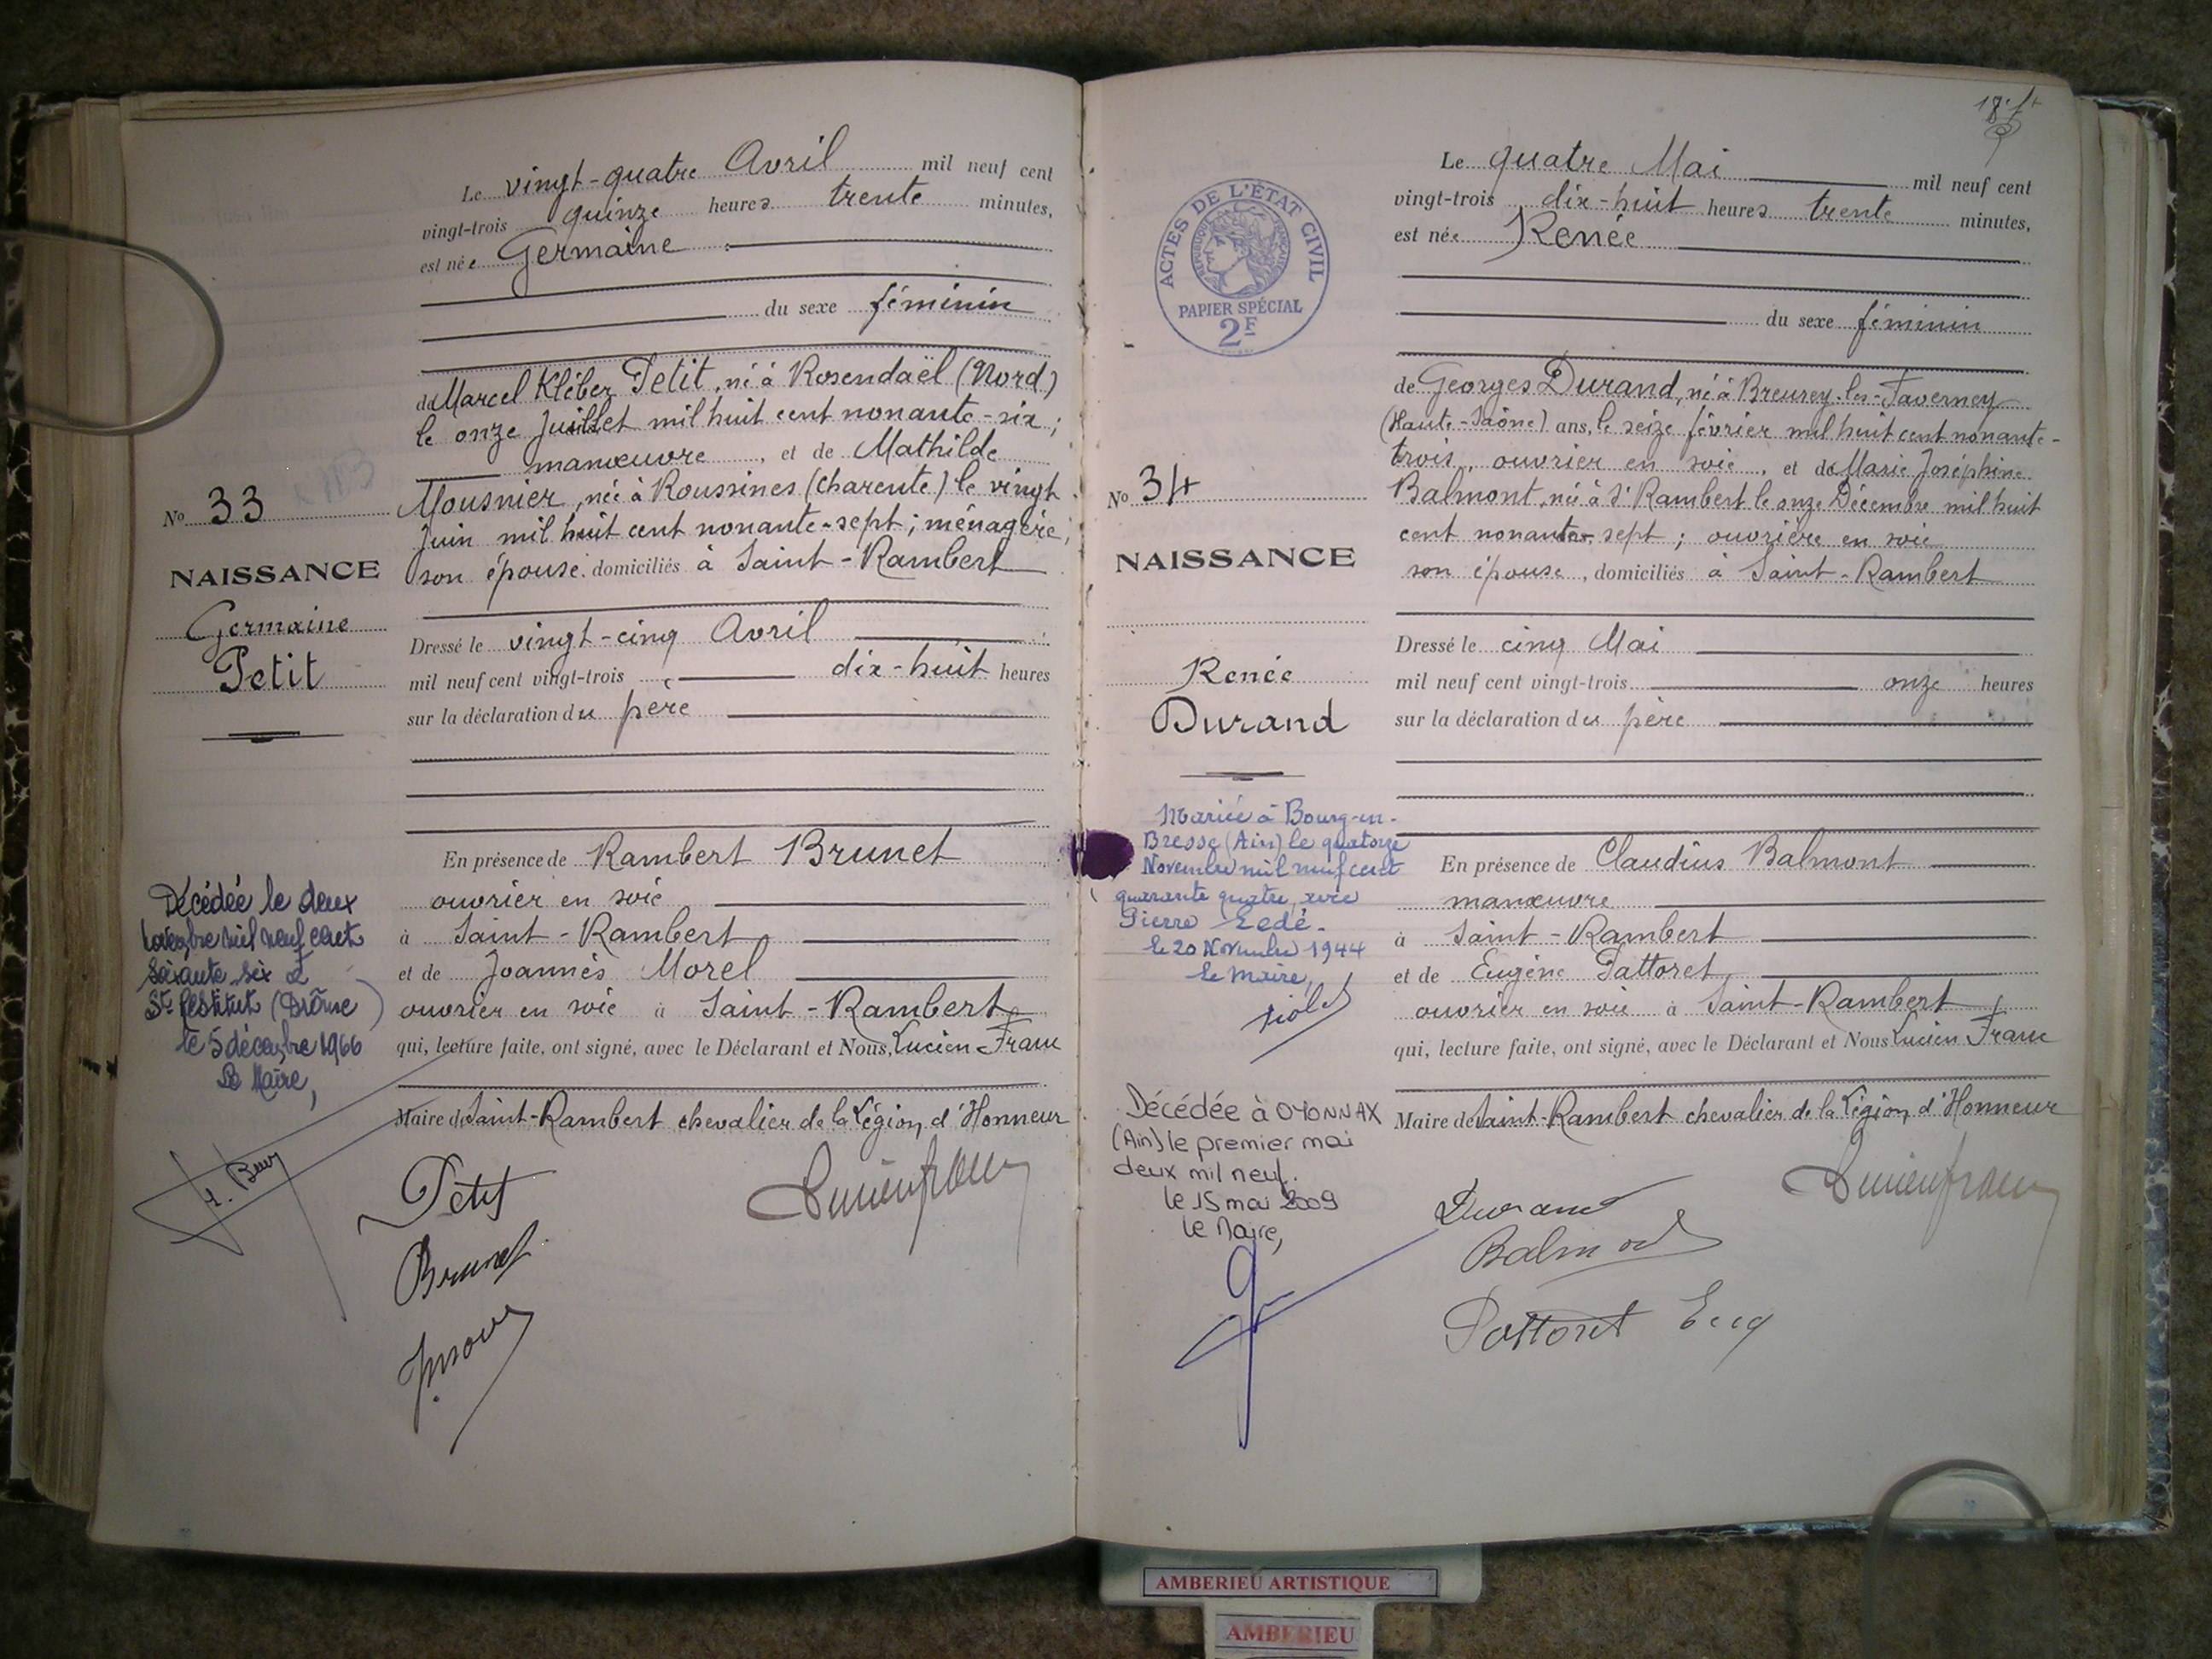 Le vingt-quatre Avril mil neuf cent
vingt-trois quinze heures trente minutes,
est née Germaine
du sexe féminin
de Marcel Kléber Petit, né à Rosendaël (Nord)
le onze Juillet mil huit cent nonante-six;
manœuvre, et de Mathilde
Mousnier, née à Roussines (Charente) le vingt
Juin mil huit cent nonante-sept; ménagère;
son épouse, domiciliés à Saint-Rambert
Dressé le vingt-cinq Avril
mil neuf cent vingt-trois, dix-huit heures
sur la déclaration du père
En présence de Rambert Brunet
ouvrier en soie
à Saint-Rambert
et de Joannès Morel
ouvrier en soie à Saint-Rambert
qui, lecture faite, ont signé, avec le Déclarant et Nous, Lucien Franc
Maire de Saint-Rambert chevalier de la Légion d'Honneur
No 33
NAISSANCE
Germaine
Petit
Décédée le deux
novembre mil neuf cent
soixante six à
St Restitut (Drôme)
le 5 décembre 1966
Le Maire,
Petit
Brunet
Lucien franc
18
Le quatre Mai mil neuf cent
vingt-trois dix-huit heures trente minutes,
est née Renée
du sexe féminin
de Georges Durand, né à Breurey-les-Faverney
(Haute-Saône) ans, le seize février mil huit cent nonante-
trois, ouvrier en soie, et de Marie Joséphine
Balmont, née à St Rambert le onze Décembre mil huit
cent nonante-sept; ouvrière en soie
son épouse, domiciliés à Saint-Rambert
Dressé le cinq Mai
mil neuf cent vingt-trois onze heures
sur la déclaration du père
En présence de Claudius Balmont
manœuvre
à Saint-Rambert
et de Eugène Pattoret
ouvrier en soie à Saint-Rambert
qui, lecture faite, ont signé, avec le Déclarant et Nous Lucien Franc
Maire de Saint-Rambert chevalier de la Légion d'Honneur
ACTES DE L'ÉTAT CIVIL
RÉPUBLIQUE FRANÇAISE
PAPIER SPÉCIAL
2F
No 34
NAISSANCE
Renée
Durand
Mariée à Bourg-en-
Bresse (Ain) le quatorze
Novembre mil neuf cent
quarante quatre, avec
Pierre Ledé.
le 20 Novembre 1944
le maire,
Décédée à OYONNAX
(Ain) le premier mai
deux mil neuf.
le 15 mai 2009
le Maire,
Durand
Balmont
Pattoret Eug
Lucien franc
AMBERIEU ARTISTIQUE
AMBERIEU